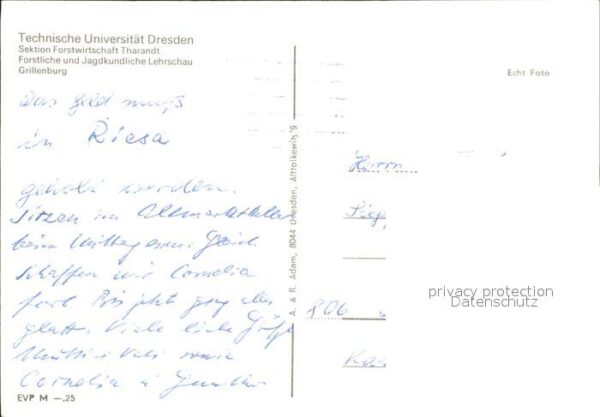 Technische Universität Dresden
Sektion Forstwirtschaft Tharandt
Forstliche und Jagdkundliche Lehrschau
Grillenburg
Das Geld muß
in Riesa
geholt werden.
Sitzen im Altmarktkeller
beim Mittagessen. Gleich
schaffen wir Cornelia
fort. Bis jetzt ging alles
glatt. Viele liebe Grüße
Mutti + Vati sowie
Cornelia u.
EVP M —.25
A. & R. Adam, 8044 Dresden, Alttolkewitz 9
Echt Foto
Herrn
Sieg
206
privacy protection
Datenschutz